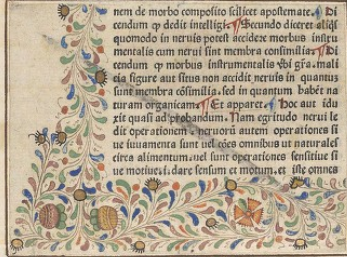 nem de morbo composito scilicet apostemate. Di
cendum ꝙ dedit intelligi. Secundo diceret aliqͥs
quomodo in neruis potest accidere morbus instru
mentalis cum nerui sint membra consimilia. Di
cendum ꝙ morbus instrumentalis gra. mali
cia figure aut situs non accidit neruis in quantus
sunt mēbra cōsimilia. sed in quantum habēt na
turam organicam. Et apparet. Hoc aut idu
xit quasi ad probandum. Nam egritudo nerui le
dit operationem neruorū autem operationes si
ue iuuamenta sunt uel cōes omnibus ut naturales
circa alimentum. uel sunt operationes sensitiue si
ue motiue. i. dare sensum et motum. et iste omnes